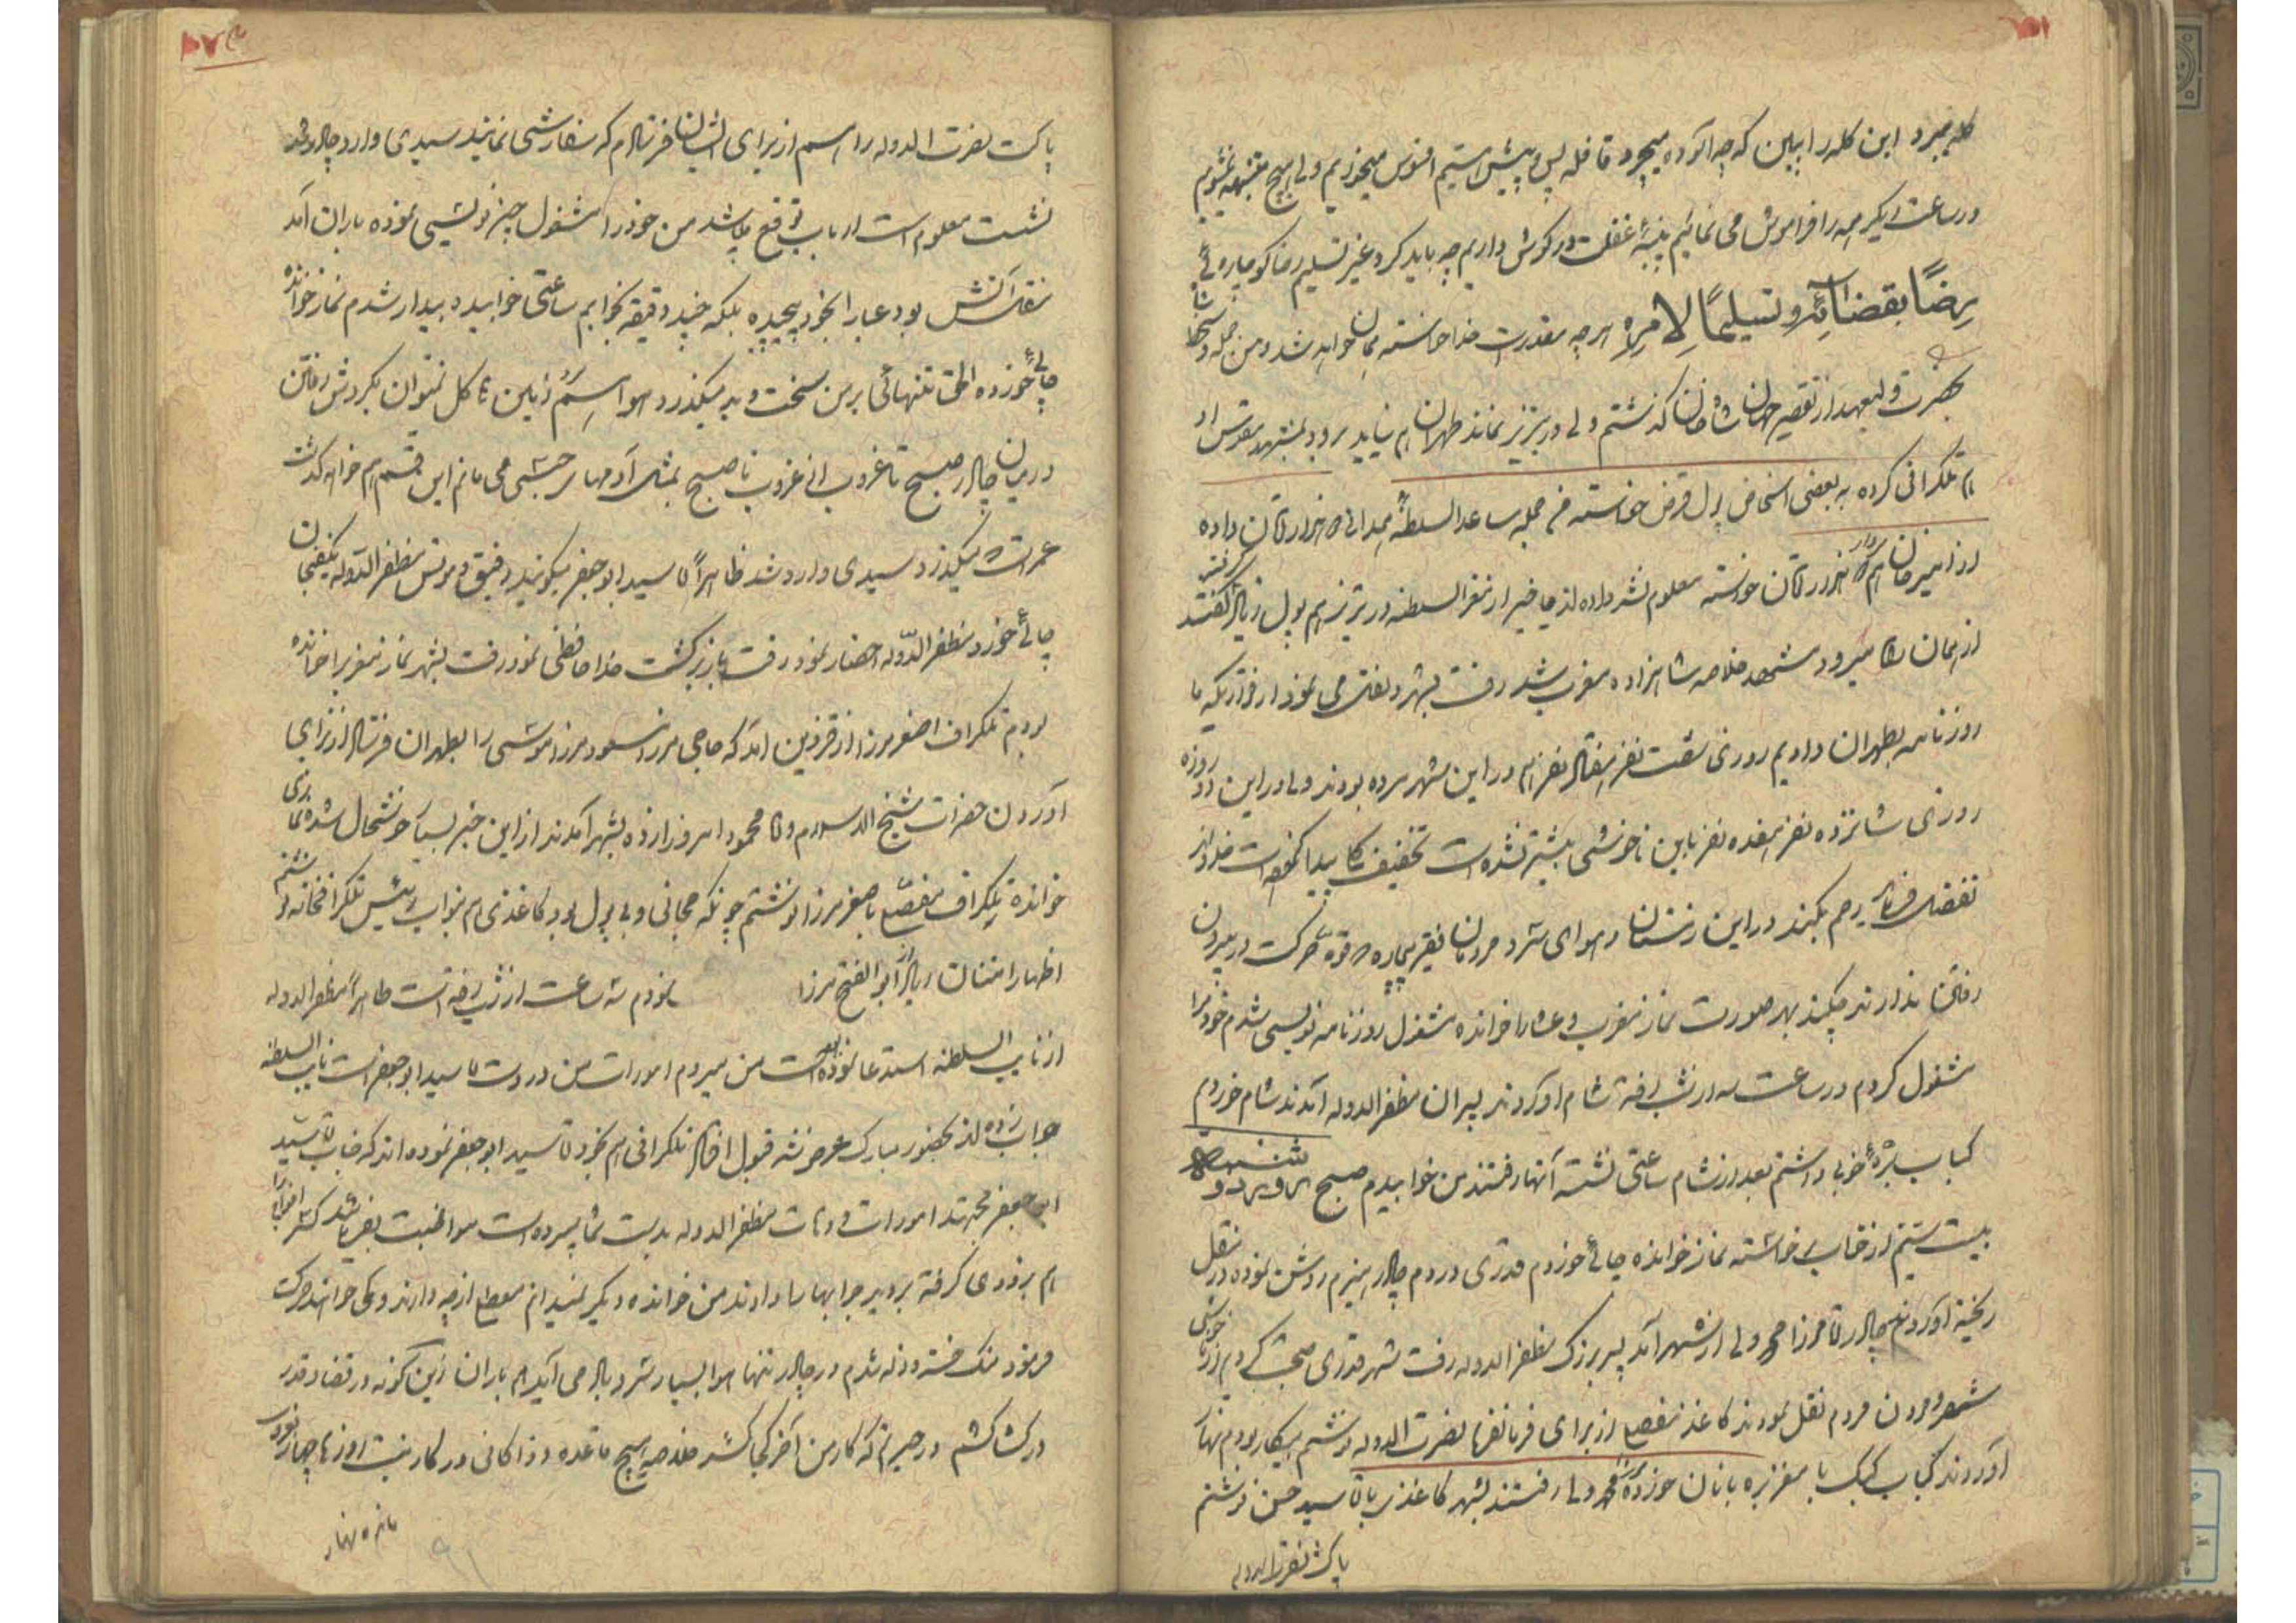 گله میبرد این گله را ببین که چه آسوده میچرد قافله پس و پیش استیم افسوس میخوریم ولی هیچ متنبه نمیشویم
در ساعت دیگر همه را فراموش می نمائیم پنبهٔ غفلت در گوش داریم چه باید کرد غیر تسلیم رضا کو چارهٔ
رِضًا بقضائِه و تسلیمًا لِامرِه هر چه مقدرت خدا خواسته همان خواهد شد و من جمله
بحضرت ولیعهد از تقصیر جهان شاه خان گذشتم ولی در تبریز نماند طهران هم نیاید برود بمشهد مقدس او
هم تلگرافی کرده به بعضی اشخاص پول قرض خواسته من جمله ساعد السلطنه همدانی هزار تومان داده
از امیر خان سردار هم هزار تومان خواسته معلوم نشد داده اند یا خیر از نصر السلطنه در تبریز هم پول زیاد گرفته گفتند
از همان راه میرود مشهد خلاصه شاهزاده مغرب شد رفت بشهر و نقل می نمود از قراریکه ما
روزنامه بطهران دادیم روزی شصت نفر هفتاد نفر هم در این شهر مرده بودند ولی در این دو روزه
روزی شانزده نفر هفده نفر باین ناخوشی بیشتر نشده است تخفیف کلی پیدا کرده است خداوند
تفضل فرماید رحم بکند در این زمستان و هوای سرد مردمان فقیر بیچاره قوهٔ حرکت در بیرون
رفتن ندارند چکنند بهر صورت نماز مغرب و عشا را خوانده مشغول روزنامه نویسی شدم خود را
مشغول کردم در ساعت سه از شب رفته شام آوردند پسران مظفر الدوله آمدند شام خوردیم
کباب برهٔ خوبی داشتم بعد از شام ساعتی نشسته آنها رفتند من خوابیدم صبح روز دو شنبه
بیست ستیم از خواب برخاسته نماز خوانده چائی خوردم قدری در دم چادر هیزم روشن نموده در منقل
ریخته آوردند بچادر آقا میرزا محمد ولی از شهر آمد پسر بزرگ مظفر الدوله رفت شهر قدری صحبت کردیم از ناخوشی
شهر و مردن مردم نقل نمودند کاغذ مفصلی از برای فرمانفرما نصرت الدوله نوشتم بیکار بودم نهار
آوردند کباب کبک با مغز بره با نان خورده میرزا محمد ولی رفتند بشهر کاغذی به آقا سید حسن نوشتم
پاکت نصرت الدوله
پاکت نصرت الدوله را هم از برای ایشان فرستادم که سفارشی نمایند سیدی وارد چادر شد
نشست معلوم است ارباب توقع میباشد من خود را مشغول چیز نویسی نموده باران آمد
منقل آتش بود عبا را بخود پیچیده بلکه چند دقیقه بخوابم ساعتی خوابیده بیدار شدم نماز خوانده
چائی خورده الحق تنهائی بر من سخت و بد میگذرد هوا هم سرد زمین هم گل نمیتوان بگردش رفتن
در میان چادر صبح تا غروب از غروب تا صبح بمثل آدمهای حبسی می مانم این قسم هم خواهد گذشت
عمر است میگذرد سیدی وارد شد ظاهراً آقا سید ابو جعفر میگویند رفیق و مونس مظفر الدوله یکفنجان
چائی خورد مظفر الدّوله احضار نمود رفت باز برگشت خدا حافظی نمود رفت بشهر نماز مغرب را خوانده
بودم تلگراف اصغر میرزا از قزوین آمد که حاجی میرزا مسعود میرزا موسی را بطهران فرستاد از برای
آوردن حضرات شیخ الاسلام و آقا محمود امروز وارد بشهر آمدند از این خبر بسیار خوشحال شده نمازی
خوانده تلگراف مفصلی باصغر میرزا نوشتم چونکه مجانی و بی پول بود کاغذی هم بنواب رئیس تلگرافخانه نوشتم
اظهار امتنان زیاد از ابو الفتح میرزا نمودم سه ساعت از شب رفته است ظاهراً مظفر الدوله
از نایب السلطنه استدعا نموده بوده است من میروم امورات من در دست آقا سید ابو جعفر است نایب السلطنه
جواب زده اند بحضور مبارک عرض شد قبول افتاد تلگرافی هم بخود آقا سید ابو جعفر نموده اند که جناب آقا سید
ابو جعفر مجتهد امورات و دهات مظفر الدوله بدست شما سپرده است مواظبت بفرمائید
هم بزودی گرفته بردید جوابها را دادند من خوانده دیگر نمیدانم معطلی از چه دارند و کی خواهند حرکت
فرمود منکه خسته و زله شدم در چادر تنها هوا بسیار سرد باد می آید هم باران زین گونه در قضا و قدر
در کشاکشم در حیرتم که کار من آخر کجا کشد خلاصه هیچ قاعده و ارکانی در کار نیست روز ها چهار
مانده نهار